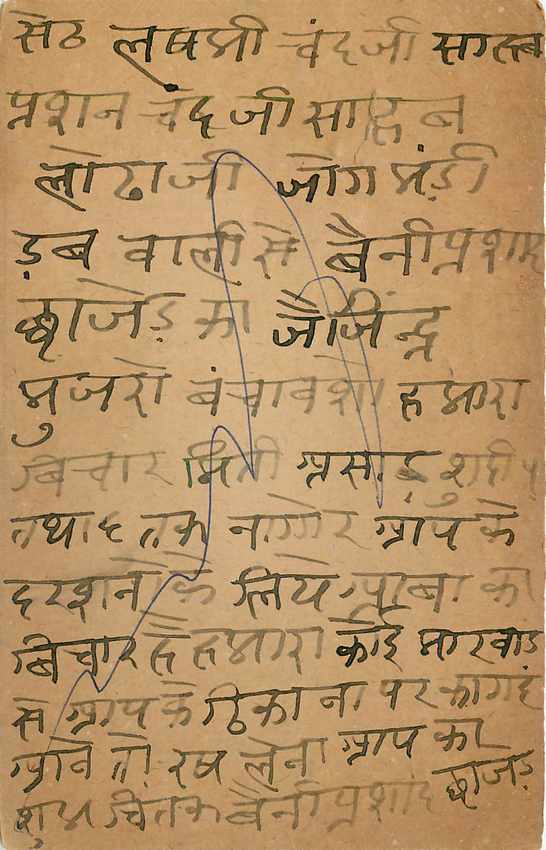 सेठ लषमी चंदजी सास्तब
प्रशन चंदजी साहब
लोढाजी जोग मंडी
ड़ब वाली से बैनीप्रशाद
छाजेड़ का जैजिंन्द्र
मुजरो बंचावशो हमारा
बिचार मिती शुदी
तथा ६ तक नागोर आप के
दरशनो के लिये आबा का
बिचार है हमारा कोई मारवाड
से आप के ठिकाना पर कागद
आवे तो रष लेना आप का
शुभ चिंतक बैनीप्रशाद छाजेड़